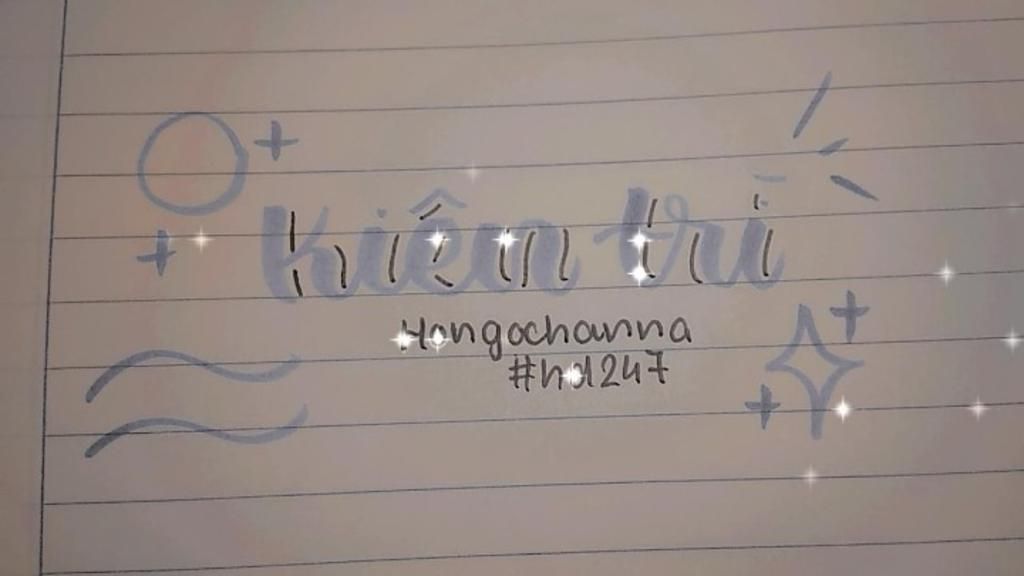 kiêm trì
Hongochanna
#hd247